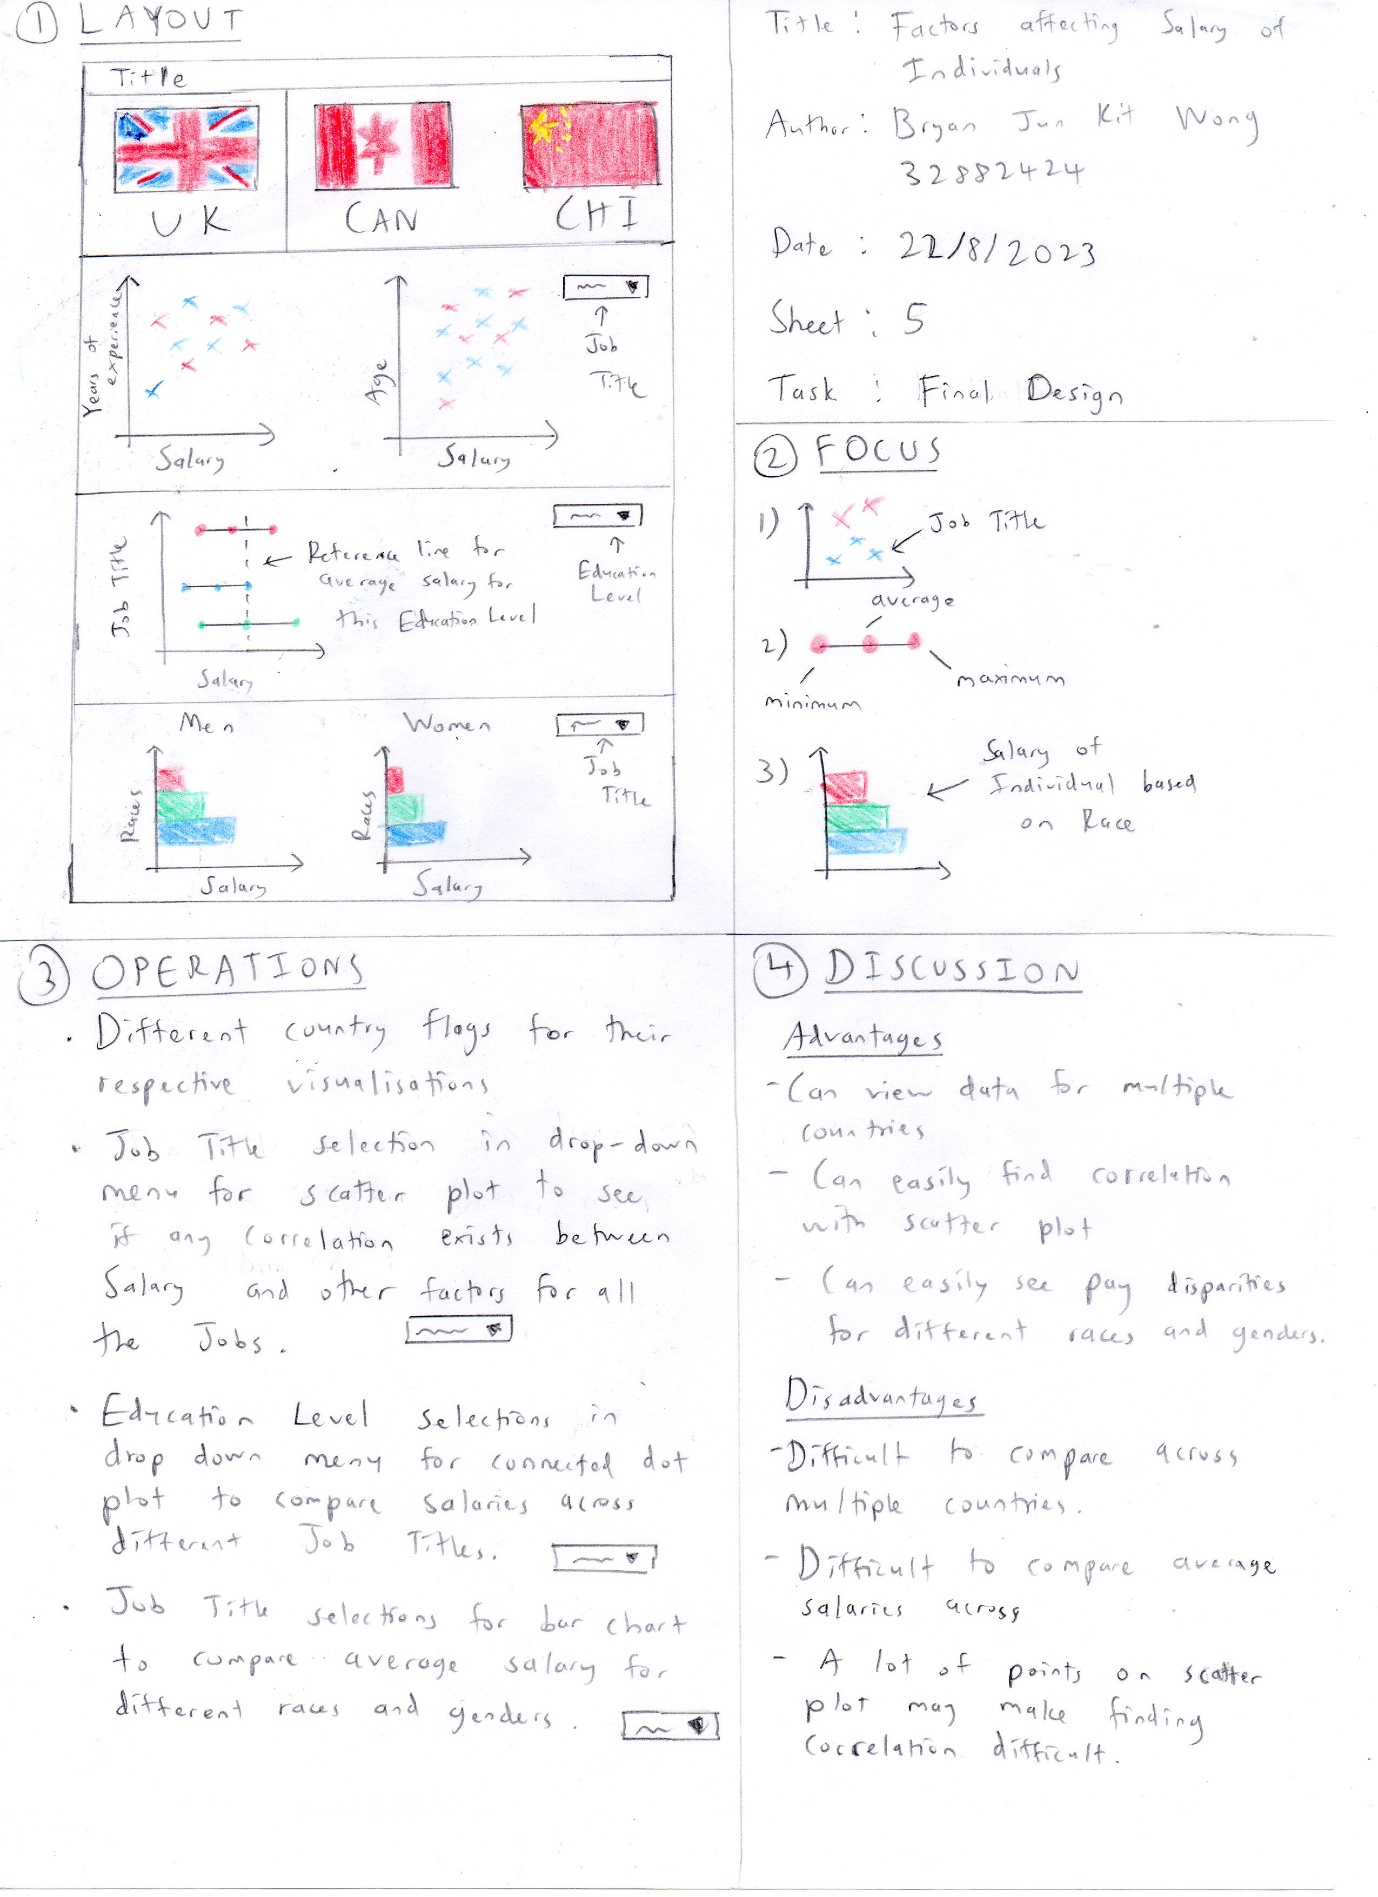 ① LAYOUT
Title
UK
CAN
CHI
Years of
experience
Salary
Age
Salary
Job
Title
Job Title
Reference line for
average salary for
this Education Level
Salary
Education
Level
Men
Races
Salary
Women
Races
Salary
Job
Title
Title : Factors affecting Salary of
Individuals
Author : Bryan Jun Kit Wong
32882424
Date : 22/8/2023
Sheet : 5
Task : Final Design
② FOCUS
1)
Job Title
2)
average
minimum
maximum
3)
Salary of
Individual based
on Race
③ OPERATIONS
• Different country flags for their
respective visualisations
• Job Title selection in drop-down
menu for scatter plot to see
if any correlation exists between
Salary and other factors for all
the Jobs.
• Education Level selections in
drop down menu for connected dot
plot to compare salaries across
different Job Titles.
• Job Title selections for bar chart
to compare average salary for
different races and genders.
④ DISCUSSION
Advantages
- Can view data for multiple
countries
- Can easily find correlation
with scatter plot
- Can easily see pay disparities
for different races and genders.
Disadvantages
- Difficult to compare across
multiple countries.
- Difficult to compare average
salaries across
- A lot of points on scatter
plot may make finding
correlation difficult.